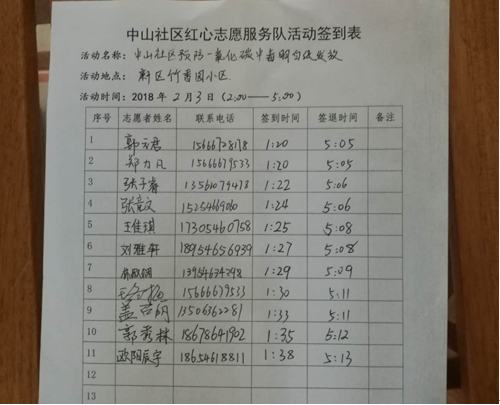 中山社区红心志愿服务队活动签到表
活动名称：中山社区预防一氧化碳中毒明白纸发放
活动地点：新区竹香园小区
活动时间：2018年2月3日（2:00——5:00）
序号 志愿者姓名 联系电话 签到时间 签退时间 备注
1 郭云君 15666728178 1:20 5:05
2 郑力凡 15666679533 1:20 5:05
3 张子睿 13561079478 1:22 5:06
4 张竞文 15254669060 1:24 5:06
5 王佳琪 17305460758 1:25 5:08
6 刘雅轩 18954656939 1:27 5:08
7 1:29 5:09
8 15666679533 1:30 5:11
9 盖志明 13506362281 1:33 5:11
10 郭秀林 18678641902 1:35 5:12
11 欧阳辰宇 18654618811 1:38 5:13
12
13